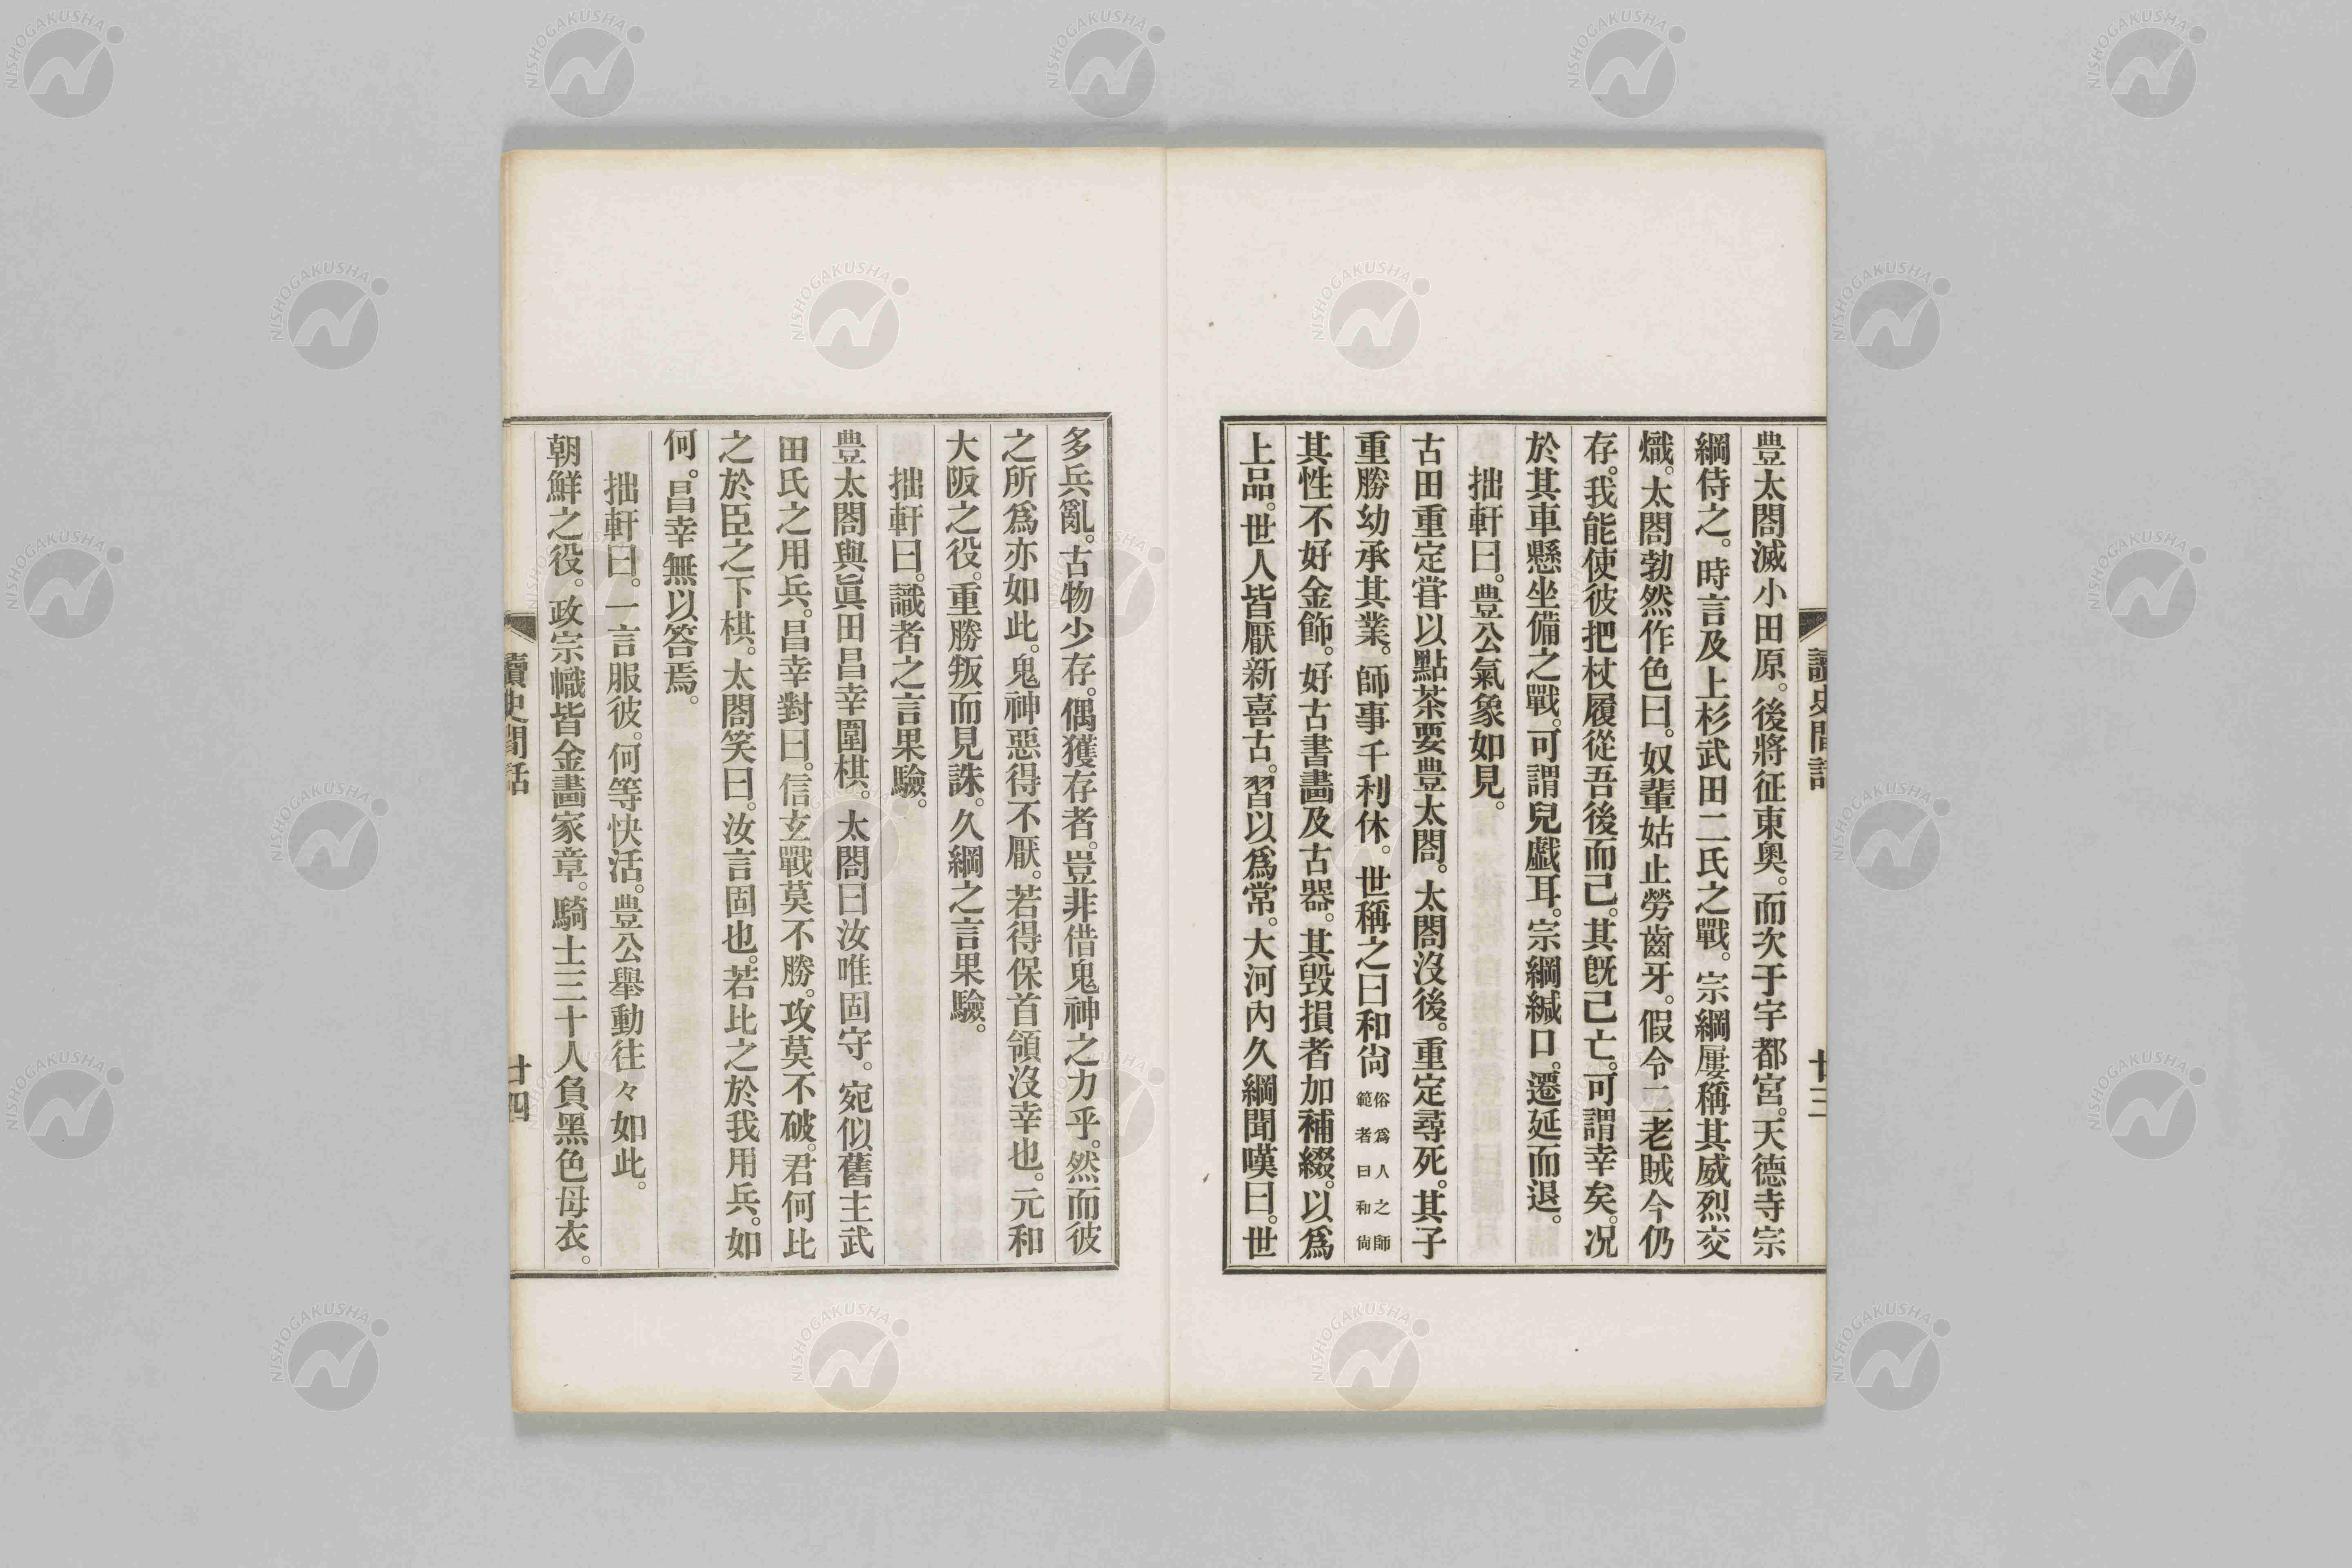 豊太閤滅小田原。後將征東奧。而次于宇都宮。天德寺宗
綱侍之。時言及上杉武田二氏之戰。宗綱屢稱其威烈交
熾。太閤勃然作色曰。奴輩姑止勞齒牙。假令二老賊今仍
存。我能使彼把杖履從吾後而已。其既已亡。可謂幸矣。况
於其車懸坐備之戰。可謂兒戲耳。宗綱緘口。遷延而退。
拙軒曰。豊公氣象如見。
古田重定甞以點茶要豊太閤。太閤沒後。重定尋死。其子
重勝幼承其業。師事千利休。世稱之曰和尙俗爲人之師範者曰和尙
其性不好金飾。好古書畵及古器。其毀損者加補綴。以爲
上品。世人皆厭新喜古。習以爲常。大河內久綱聞嘆曰。世
讀史閒話
廿三
多兵亂。古物少存。偶獲存者。豈非借鬼神之力乎。然而彼
之所爲亦如此。鬼神惡得不厭。若得保首領沒幸也。元和
大阪之役。重勝叛而見誅。久綱之言果驗。
拙軒曰。識者之言果驗。
豊太閤與眞田昌幸圍棋。太閤曰汝唯固守。宛似舊主武
田氏之用兵。昌幸對曰。信玄戰莫不勝。攻莫不破。君何比
之於臣之下棋。太閤笑曰。汝言固也。若比之於我用兵。如
何。昌幸無以答焉。
拙軒曰。一言服彼。何等快活。豊公擧動往々如此。
朝鮮之役。政宗幟皆金畵家章。騎士三十人負黑色母衣。
讀史閒話
廿四
NISHOGAKUSHA